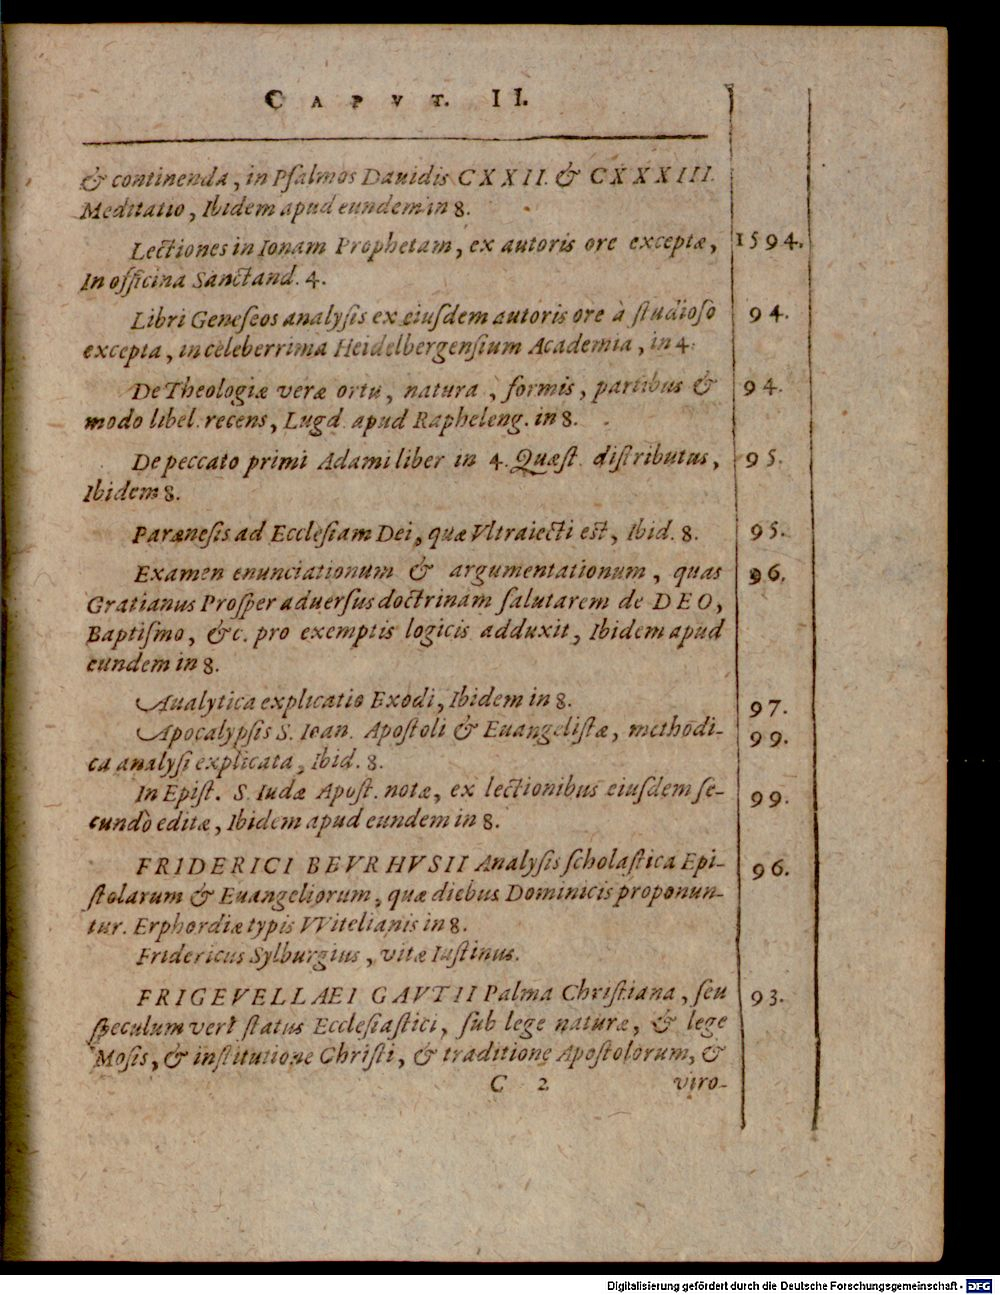 CAPVT. II.
& continenda, in Pſalmos Dauidis CXXII. & CXXXIII.
Meditatio, Ibidem apud eundem in 8.
Lectiones in Ionam Prophetam, ex autoris ore exceptæ, 1594.
In officina Sanctand. 4.
Libri Geneſeos analyſis ex eiuſdem autoris ore à ſtudioſo 94.
excepta, in celeberrima Heidelbergenſium Academia, in 4.
De Theologiæ veræ ortu, natura, formis, partibus & 94.
modo libel. recens, Lugd. apud Rapheleng. in 8.
De peccato primi Adami liber in 4. Quæſt. diſtributus, 95.
Ibidem 8.
Parænesis ad Eccleſiam Dei, quæ Vltraiecti eſt, Ibid. 8. 95.
Examen enunciationum & argumentationum, quas 96.
Gratianus Proſper aduerſus doctrinam ſalutarem de DEO,
Baptiſmo, &c. pro exemptis logicis adduxit, Ibidem apud
eundem in 8.
Aualytica explicatio Exodi, Ibidem in 8. 97.
Apocalypſis S. Ioan. Apoſtoli & Euangeliſtæ, methodi- 99.
ca analyſi explicata, Ibid. 8.
In Epiſt. S. Iudæ Apoſt. notæ, ex lectionibus eiuſdem ſe- 99.
cundò editæ, Ibidem apud eundem in 8.
FRIDERICI BEVRHVSII Analyſis ſcholaſtica Epi- 96.
ſtolarum & Euangeliorum, quæ diebus Dominicis proponun-
tur. Erphordiæ typis VVitelianis in 8.
Fridericus Sylburgius, vitæ Iuſtinus.
FRIGEVELLAEI GAVTII Palma Chriſtiana, ſeu 93.
ſpeculum veri ſtatus Eccleſiaſtici, ſub lege naturæ, & lege
Moſis, & inſtitutione Chriſti, & traditione Apoſtolorum, &
C 2 viro-
Digitalisierung gefördert durch die Deutsche Forschungsgemeinschaft - DFG